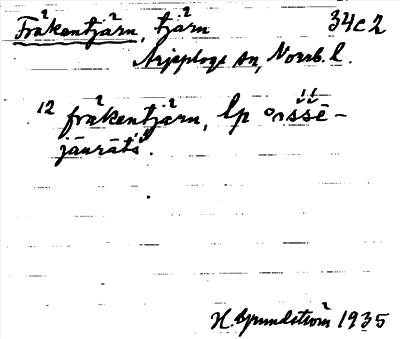 Fräkentjärn, tjärn 34c2
Arjeplogs sn, Norrb. l.
12 fräkentjärn, lp
jäurätš.
H. Grundström 1935